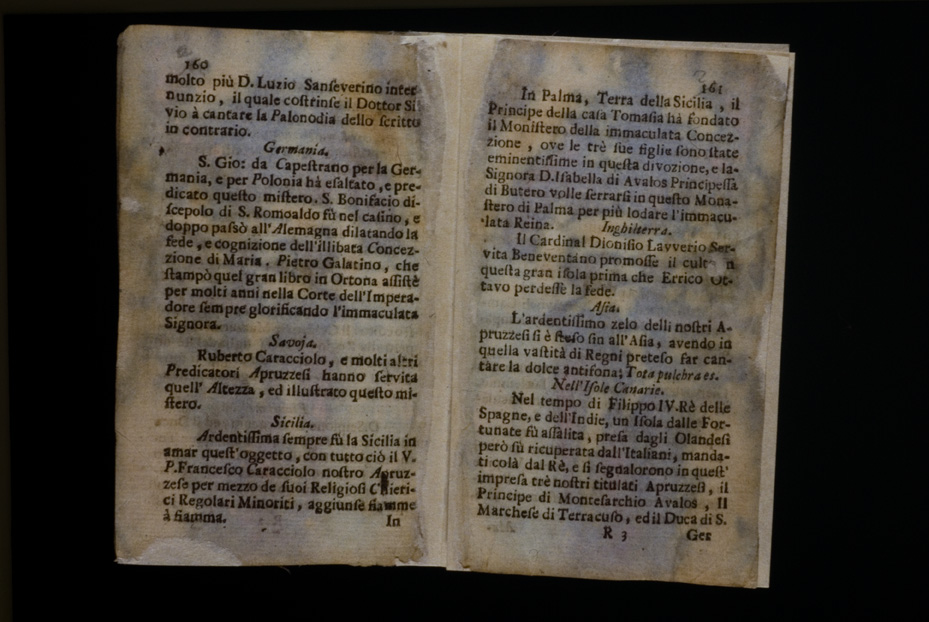 160
molto più D. Luzio Sanſeverino inter
nunzio, il quale coſtrinſe il Dottor Si
vio à cantare la Palonodia dello ſcritto
in contrario.
Germania.
S. Gio: da Capeſtrano per la Ger-
mania, e per Polonia hà eſaltato, e pre-
dicato queſto miſtero. S. Bonifacio di-
ſcepolo di S. Romoaldo fù nel caſino, e
doppo paſsò all'Alemagna dilatando la
fede, e cognizione dell'illibata Concez-
zione di Maria. Pietro Galatino, che
ſtampò quel gran libro in Ortona aſſiſtè
per molti anni nella Corte dell'Impera-
dore ſempre glorificando l'immaculata
Signora.
Savoja.
Ruberto Caracciolo, e molti altri
Predicatori Apruzzeſi hanno ſervita
quell' Altezza, ed illuſtrato queſto mi-
ſtero.
Sicilia.
Ardentiſſima ſempre fù la Sicilia in
amar queſt'oggetto, con tutto ciò il V.
P. Franceſco Caracciolo noſtro Apruz-
zeſe per mezzo de ſuoi Religioſi Chieri-
ci Regolari Minoriti, aggiunſe fiamme
à fiamma.
In
161
In Palma, Terra della Sicilia, il
Principe della caſa Tomaſia hà fondato
il Moniſtero della immaculata Concez-
zione, ove le trè ſue figlie ſono ſtate
eminentiſſime in queſta divozione, e la
Signora D. Iſabella di Avalos Principeſſa
di Butero volle ſerrarſi in queſto Mona-
ſtero di Palma per più lodare l'immacu-
lata Reina.
Inghilterra.
Il Cardinal Dioniſio Lavverio Ser-
vita Beneventano promoſſe il
queſta gran iſola prima che Errico Ot-
tavo perdeſſe la fede.
Aſia.
L'ardentiſſimo zelo delli noſtri A-
pruzzeſi ſi è ſteſo ſin all'Aſia, avendo in
quella vaſtità di Regni preteſo far can-
tare la dolce antifona; Tota pulchra es.
Nell'Iſole Canarie.
Nel tempo di Filippo IV. Rè delle
Spagne, e dell'Indie, un Iſola dalle For-
tunate fù aſſalita, preſa dagli Olandeſi
però fù ricuperata dall'Italiani, manda-
ti colà dal Rè, e ſi ſegnalorono in queſt'
impreſa trè noſtri titulati Apruzzeſi, il
Principe di Monteſarchio Avalos, Il
Marcheſe di Terracuſo, ed il Duca di S.
R 3
Ger